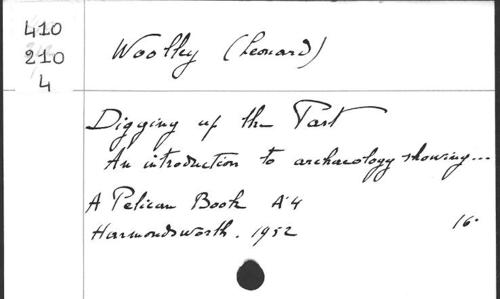 410
210
4
Woolley (Leonard)
Digging up the Past
An introduction to archaeology showing...
A Pelican Book A 4
Harmondsworth. 1952
16°